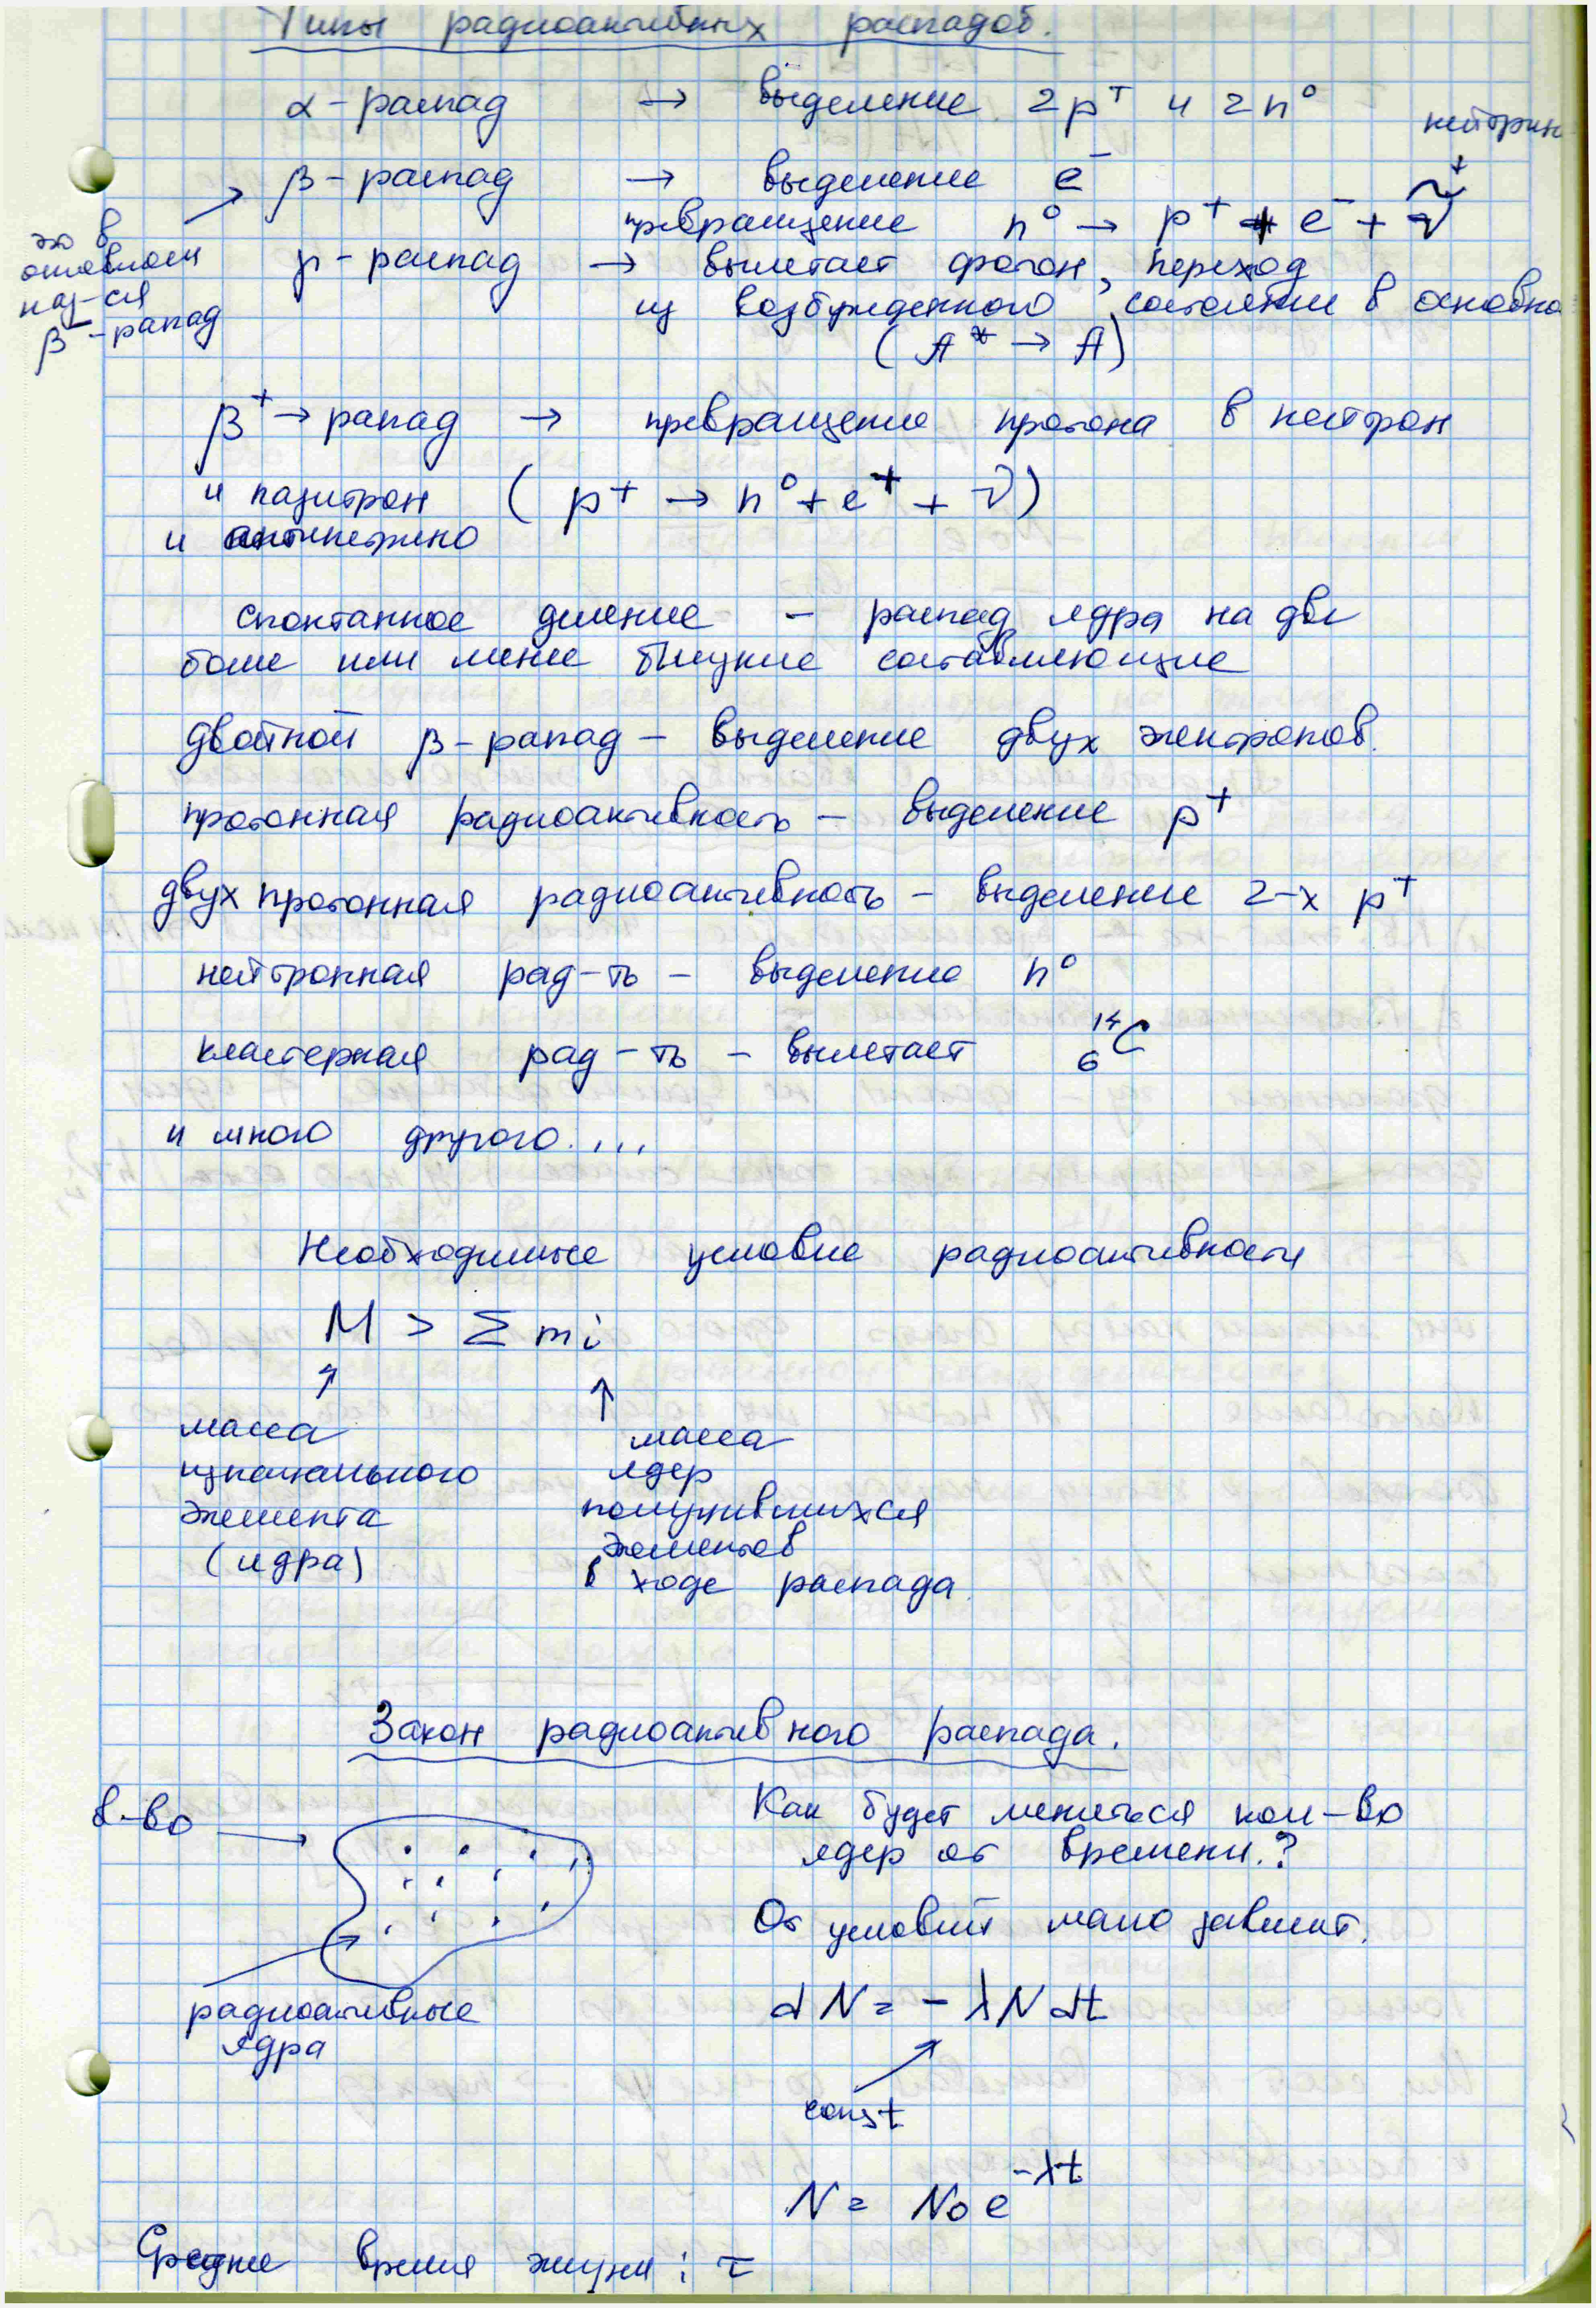 Типы радиоактивных распадов.
α - распад → выделение 2p⁺ и 2n⁰
нейтрин
β - распад → выделение e⁻
превращение n⁰ → p⁺ + e⁻ + ν̃
это в
основном
наз-ся
β⁻ - рапад
γ - распад → вылетает фотон, переход
из возбужденного состояния в основно
(A* → A)
β⁺ → рапад → превращение протона в нейтрон
и пазитрон (p⁺ → n⁰ + e⁺ + ν)
и антинетрино
спонтанное деление – распад ядра на две
более или менее близкие составляющие
двойной β - рапад – выделение двух электронов.
протонная радиоактивность – выделение p⁺
двух протонная радиоактивность – выделение 2-х p⁺
нейтронная рад-ть – выделение n⁰
кластерная рад-ть – вылетает ¹⁴₆C
и много другого....
Необходимые условие радиоактивности
M > Σ mi
↑ ↑
масса
изначального
элемента
(ядра)
масса
ядер
получившихся
элементов
в ходе распада.
Закон радиоактивного распада.
в-во →
радиоактивные
ядра
Как будет меняться кол-во
ядер от времени.?
От условий мало зависит.
dN = - λN dt
const
N = N₀ e^(-λt)
Среднее время жизни : τ